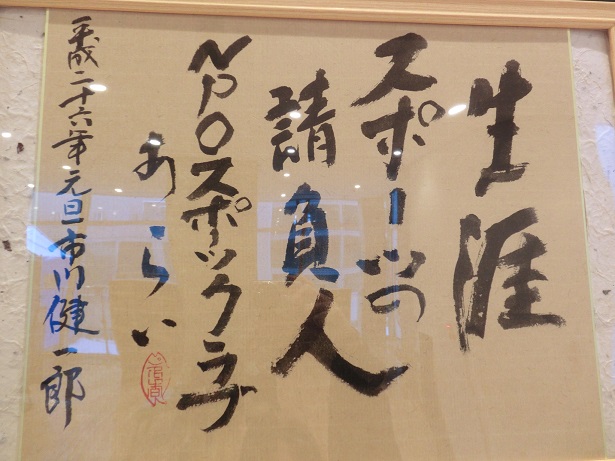 生涯
スポーツの
請負人
NPOスポーツクラブ
あらい
平成二十六年元旦市川健一郎